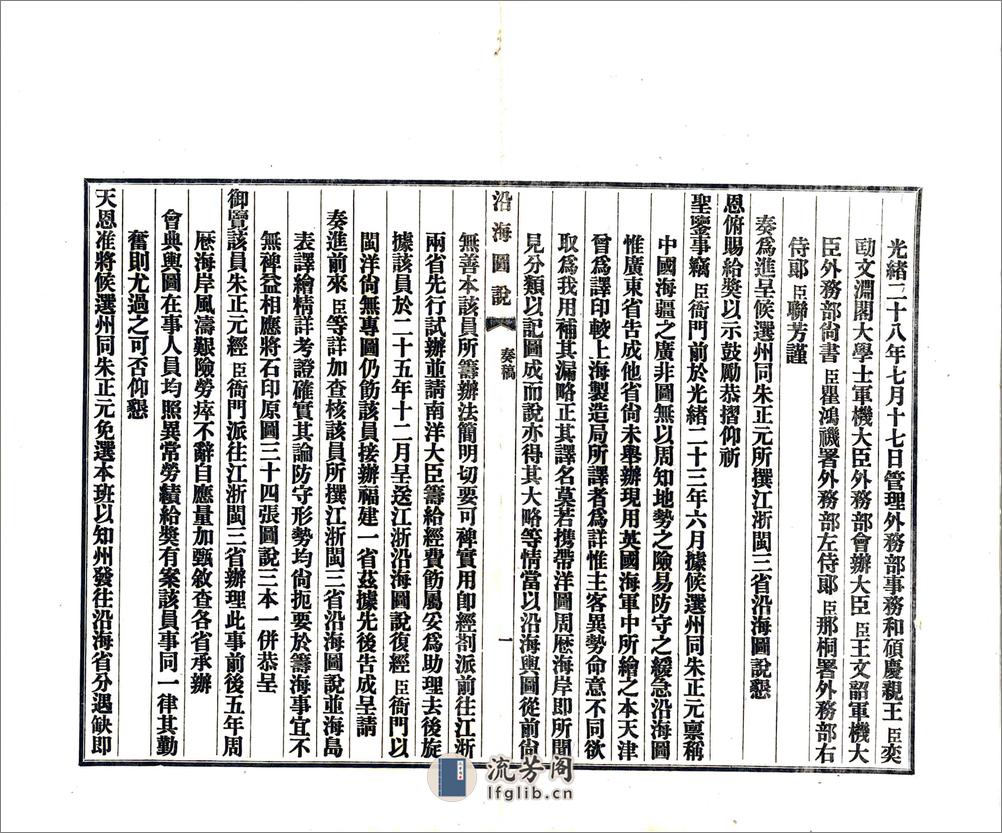 光緒二十八年七月十七日管理外務部事務和碩慶親王臣奕
劻文淵閣大學士軍機大臣外務部會辦大臣臣王文韶軍機大
臣外務部尙書臣瞿鴻禨署外務部左侍郞臣那桐署外務部右
侍郞臣聯芳謹
奏爲進呈候選州同朱正元所撰江浙閩三省沿海圖說懇
恩俯賜給獎以示鼓勵恭摺仰祈
聖鑒事竊臣衙門前於光緒二十三年六月據候選州同朱正元禀稱
中國海疆之廣非圖無以周知地勢之險易防守之緩急沿海圖
惟廣東省告成他省尙未舉辦現用英國海軍中所繪之本天津
曾爲譯印較上海製造局所譯者爲詳惟主客異勢命意不同欲
取爲我用補其漏略正其譯名莫若携帶洋圖周厯海岸即所聞
見分類以記圖成而說亦得其大略等情當以沿海輿圖從前尙
沿海圖說
奏稿
一
無善本該員所籌辦法簡明切要可裨實用卽經劄派前往江浙
兩省先行試辦並請南洋大臣籌給經費飭屬妥爲助理去後旋
據該員於二十五年十二月呈送江浙沿海圖說復經臣衙門以
閩洋尙無專圖仍飭該員接辦福建一省茲據先後告成呈請
奏進前來臣等詳加查核該員所撰江浙閩三省沿海圖說並海島
表譯繪精詳考證確實其論防守形勢均尙扼要於籌海事宜不
無裨益相應將石印原圖三十四張圖說三本一併恭呈
御覽該員朱正元經臣衙門派往江浙閩三省辦理此事前後五年周
厯海岸風濤艱險勞瘁不辭自應量加甄敘查各省承辦
會典輿圖在事人員均照異常勞績給獎有案該員事同一律其勤
奮則尤過之可否仰懇
天恩准將候選州同朱正元免選本班以知州發往沿海省分遇缺即
流芳阁
lfglib.cn